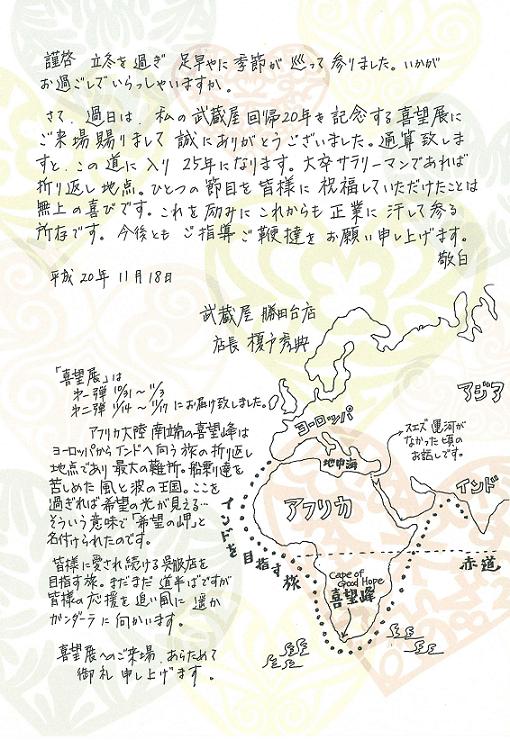 謹啓 立冬を過ぎ 足早やに季節が巡って参りました。いかが
お過ごしでいらっしゃいますか。
さて、過日は、私の武蔵屋回帰20年を記念する喜望展に
ご来場賜りまして誠にありがとうございました。通算致しま
すと、この道に入り25年になります。大卒サラリーマンであれば
折り返し地点。ひとつの節目を皆様に祝福していただけたことは
無上の喜びです。これを励みにこれからも正業に汗して参る
所存です。今後ともご指導ご鞭撻をお願い申し上げます。
敬白
平成20年11月18日
武蔵屋 勝田台店
店長 榎戸秀典
「喜望展」は
第一弾 10/31～11/3
第二弾 11/14～11/17にお届け致しました。
アフリカ大陸南端の喜望峰は
ヨーロッパからインドへ向う旅の折り返し
地点であり最大の難所。船乗り達を
苦しめた風と波の王国。ここを
過ぎれば希望の光が見える…
そういう意味で「希望の岬」と
名付けられたのです。
皆様に愛され続ける呉服店を
目指す旅。まだまだ道半ばですが
皆様の応援を追い風に遥か
ガンダーラに向かいます。
喜望展へのご来場、あらためて
御礼申し上げます。
アジア
ヨーロッパ
スエズ運河が
なかった頃の
お話しです。
地中海
インド
アフリカ
インドを目指す旅
赤道
Cape of
Good Hope
喜望峰